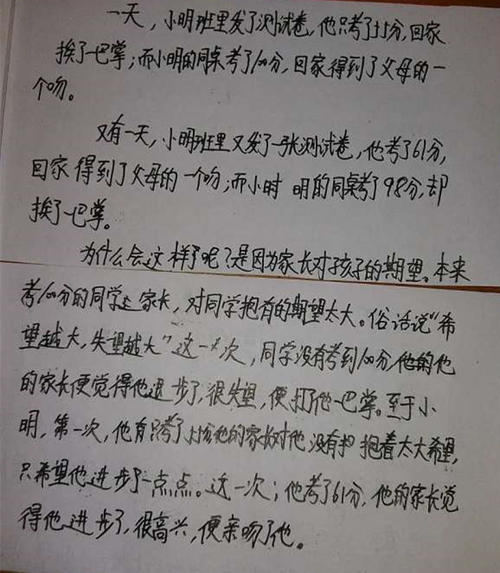 一天，小明班里发了测试卷，他只考了55分，回家
挨了一巴掌；而小明的同桌考了100分，回家得到了父母的一
个吻。
又有一天，小明班里又发了一张测试卷，他考了61分，
回家得到了父母的一个吻；而小时 明的同桌考了98分，却
挨了一巴掌。
为什么会这样了呢？是因为家长对孩子的期望。本来
考100分的同学 家长，对同学抱有的期望太大。俗话说“希
望越大，失望越大”这一次，同学没有考到100分，他的他
的家长便觉得他退步了，很失望，便打他一巴掌。至于小
明，第一次，他 只考了55分他的家长对他没有 抱着太大希望，
只希望他进步了一点点。这一次；他考了61分，他的家长觉
得他进步了，很高兴，便亲吻了他。